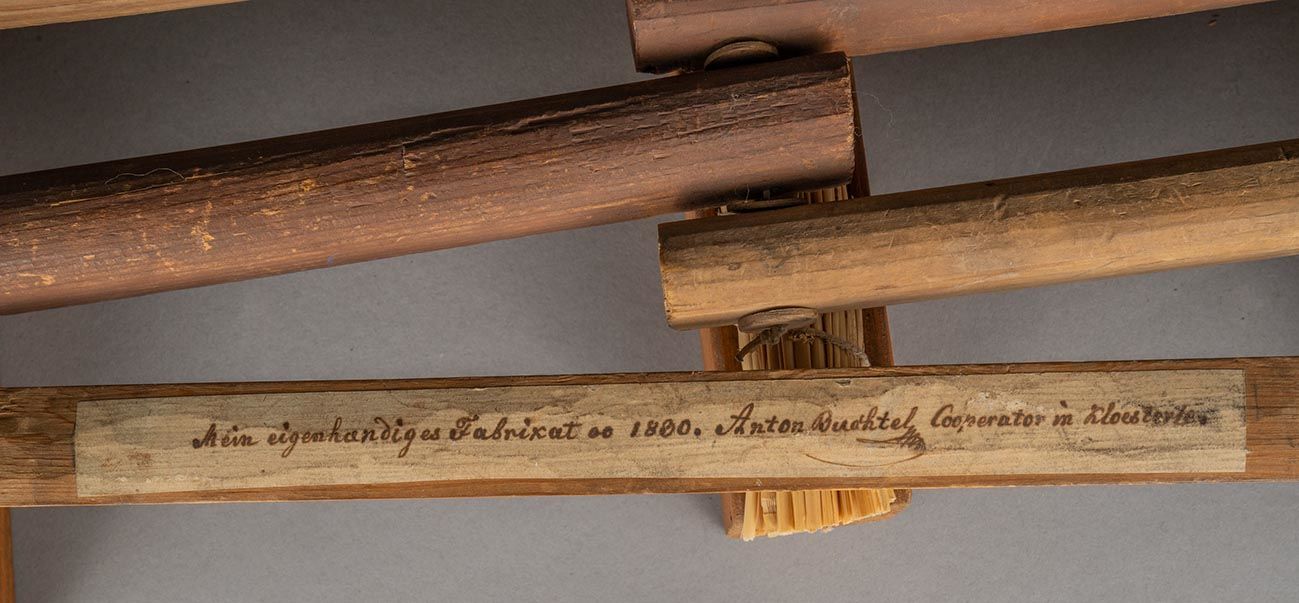 Mein eigenhændiges Fabrikat oo 1830. Anton Buchtel Cooperator in Kloesterle.